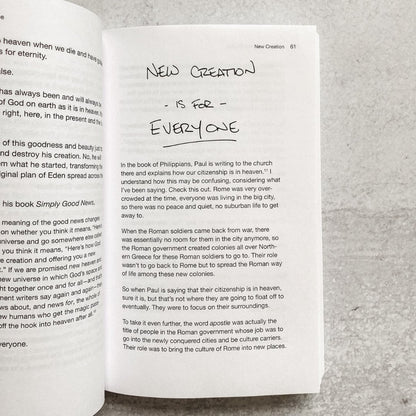 e
o heaven when we die and have
s for eternity.
alse.
has always been and will always be
of God on earth as it is in heaven.
right, here, in the present and the
of this goodness and beauty just to
and destroy his creation. No, he will
en what he started, transforming
riginal plan of Eden spread across the
his book Simply Good News,
meaning of the good news changes
on whether you think it means, "Here's
universe and go somewhere else called
you think it means, "Here's how God
e creation and offering you a new
." If we are promised new heavens and
new universe in which God's space and
ght together once and for all—and
ment writers say again and again—the
ws about, and news for, the whole of
w humans who get the magic
off the hook into heaven after all."
eryone.
New Creation 61
NEW CREATION
- IS FOR -
EVERYONE
In the book of Philippians, Paul is writing to the church
there and explains how our citizenship is in heaven. I
understand how this may be confusing, considering what
I've been saying. Check this out. Rome was very over-
crowded at the time, everyone was living in the big city,
so there was no peace and quiet, no suburban life to get
away to.
When the Roman soldiers came back from war, there
was essentially no room for them in the city anymore, so
the Roman government created colonies all over North-
ern Greece for these Roman soldiers to go to. Their role
wasn't to go back to Rome but to spread the Roman way
of life among these new colonies.
So when Paul is saying that their citizenship is in heaven,
sure it is, but that's not where they are to float off to
eventually. They were to focus on their surroundings.
To take it even further, the word apostle was actually the
title of people in the Roman government whose job was to
go into the newly conquered cities and be culture carriers.
Their role was to bring the culture of Rome into new places.